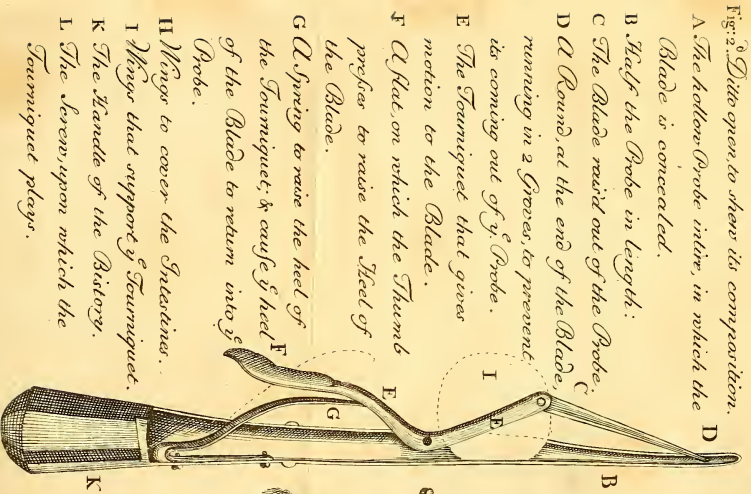 Fig: 2. Ditto open, to shew its composition.
A The hollow Probe intire, in which the
Blade is concealed.
B Half the Probe in length:
C The Blade rais'd out of the Probe.
D A Round, at the end of the Blade,
running in 2 Groves, to prevent
its coming out of yͤ Probe.
E The Tourniquet that gives
motion to the Blade.
F A flat, on which the Thumb
preſses to raise the Heel of
the Blade.
G A Spring to raise the heel of
the Tourniquet; & cauſe yͤ heel
of the Blade to return into yͤ
Probe.
H Wings to cover the Intestines.
I Wings that support yͤ Tourniquet.
K The Handle of the Bistory.
L The Screw, upon which the
Tourniquet plays.
D
C
B
I
E
E
F
G
K